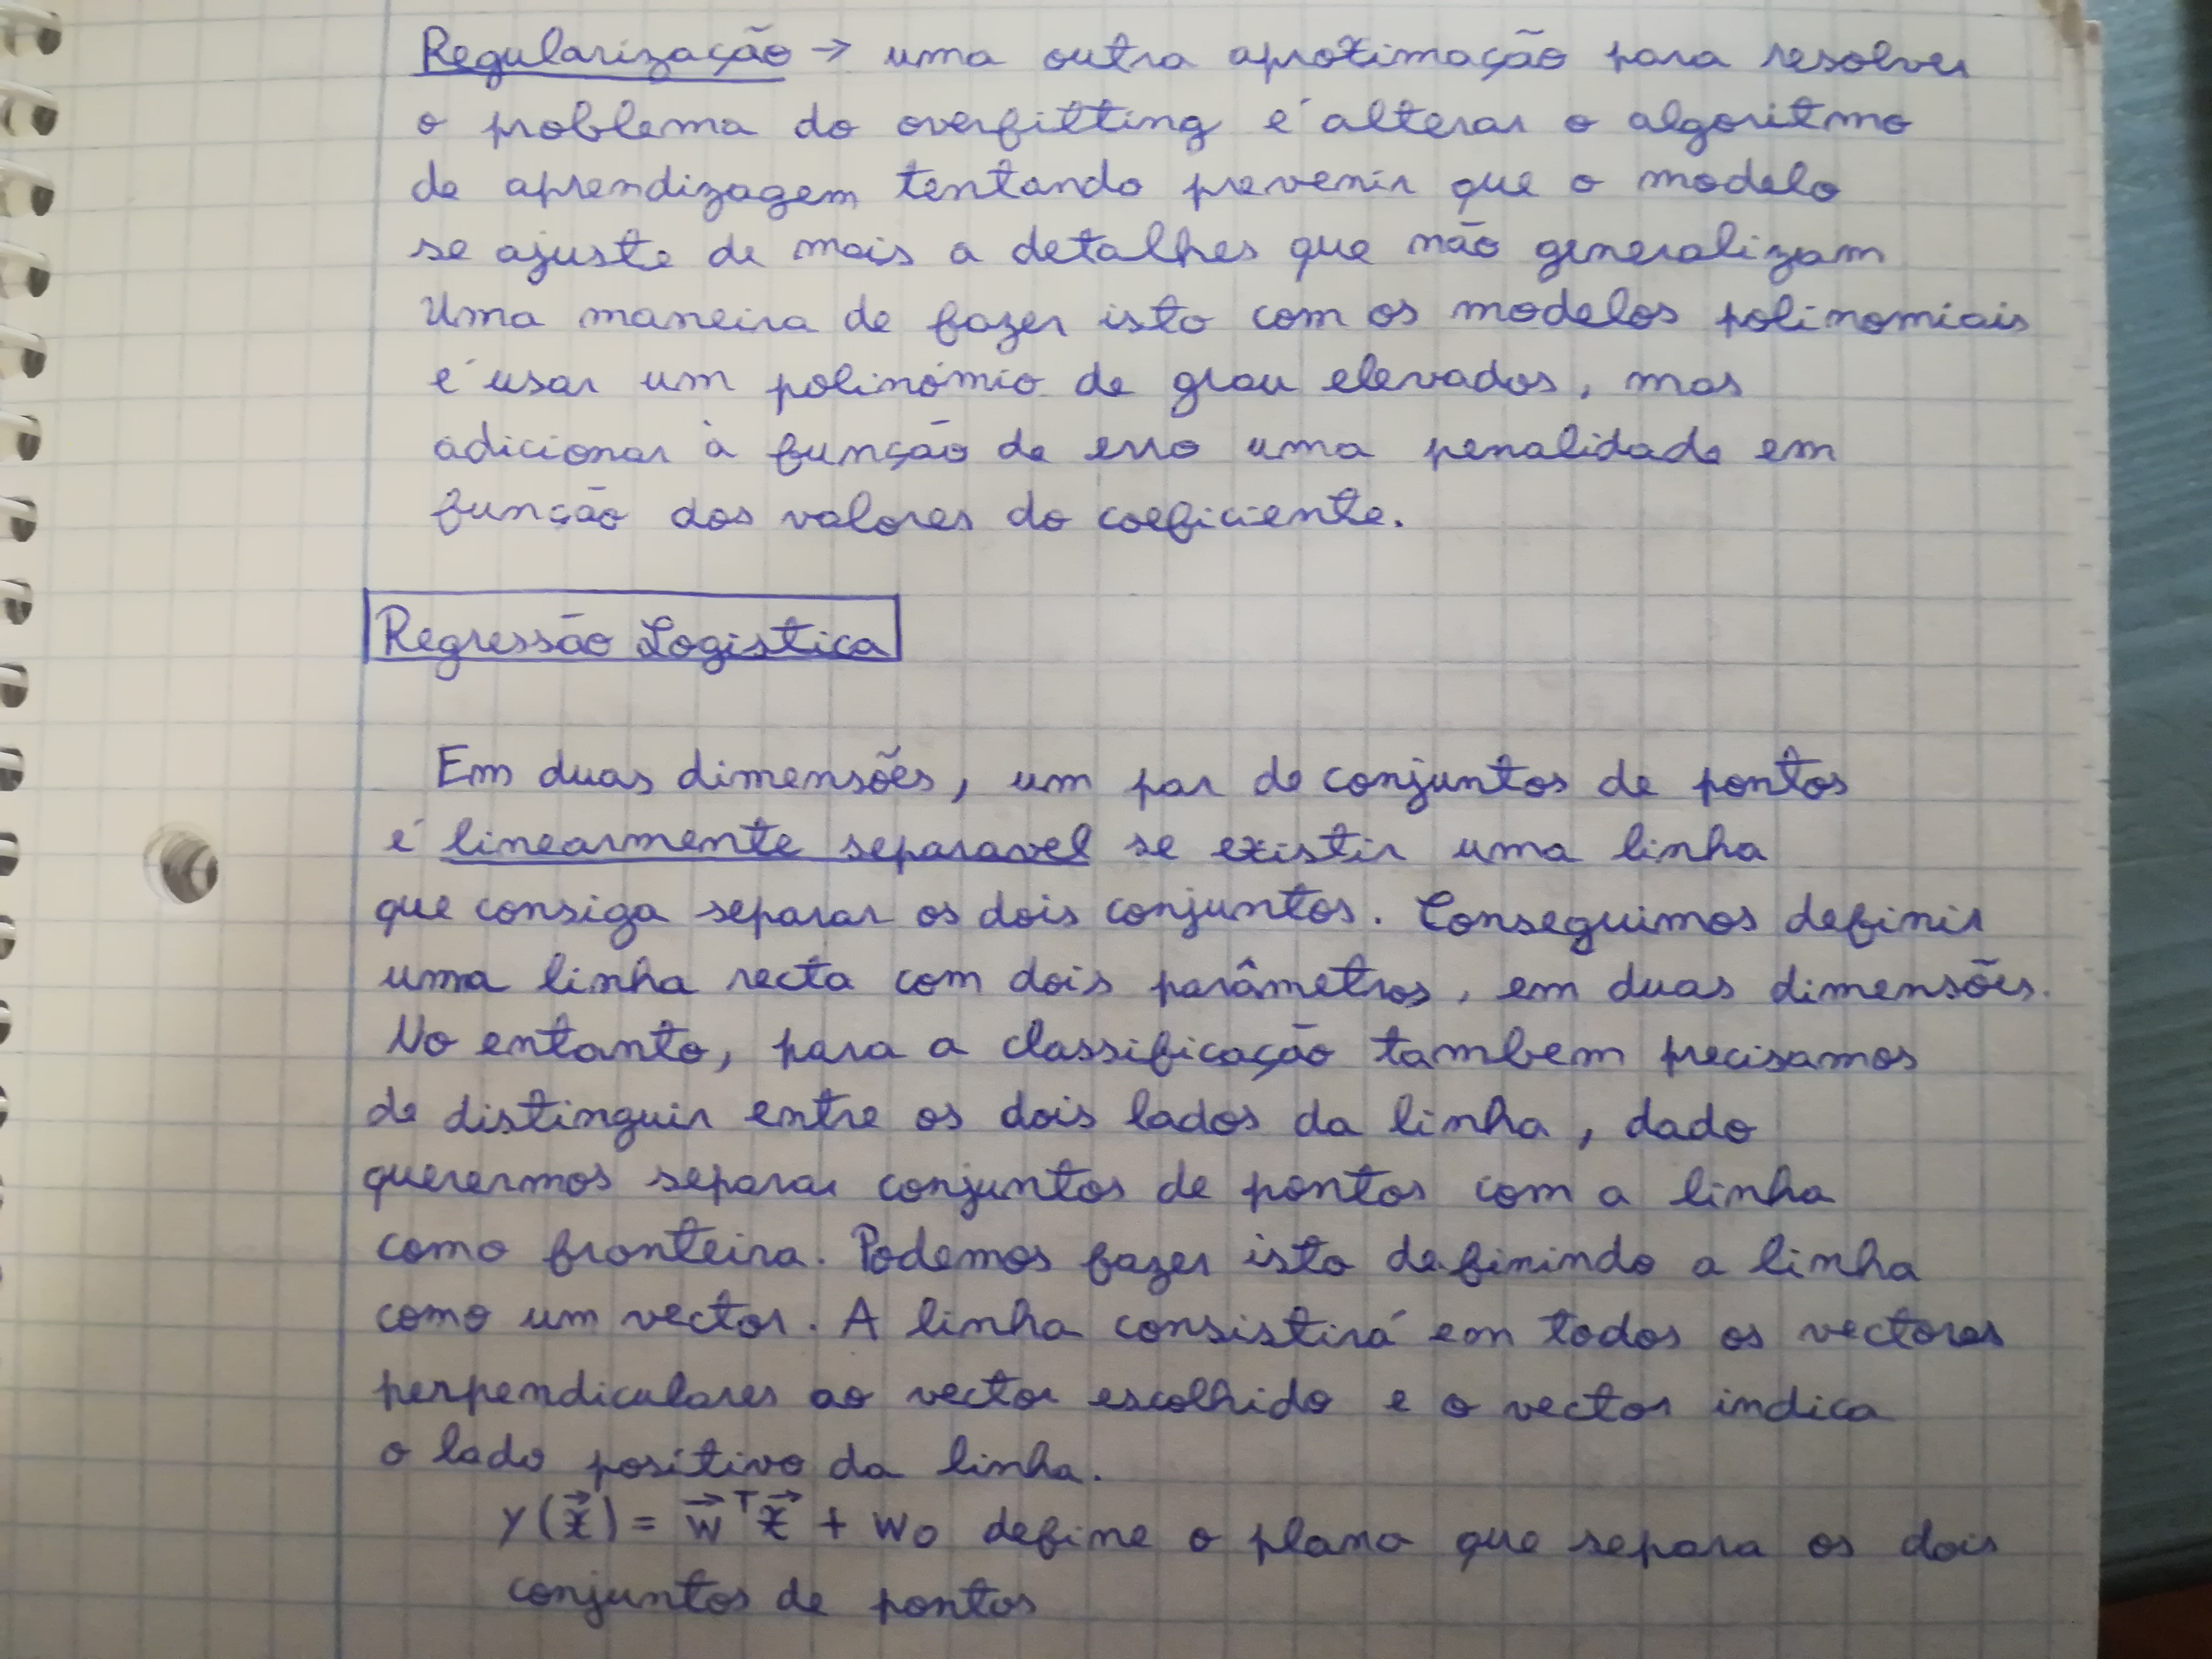 Regularização → uma outra aproximação para resolver
o problema do overfitting é alterar o algoritmo
de aprendizagem tentando prevenir que o modelo
se ajuste de mais a detalhes que não generalizam
Uma maneira de fazer isto com os modelos polinomiais
é usar um polinómio de grau elevados, mas
adicionar à função de erro uma penalidade em
função dos valores do coeficiente.
Regressão Logistica
Em duas dimensões, um par de conjuntos de pontos
é linearmente separavel se existir uma linha
que consiga separar os dois conjuntos. Conseguimos definir
uma linha recta com dois parâmetros, em duas dimensões.
No entanto, para a classificação tambem precisamos
de distinguir entre os dois lados da linha, dado
querermos separar conjuntos de pontos com a linha
como fronteira. Podemos fazer isto definindo a linha
como um vector. A linha consistirá em todos os vectores
perpendiculares ao vector escolhido e o vector indica
o lado positivo da linha.
y(x⃗) = w⃗ᵀx⃗ + w₀ define o plano que separa os dois
conjuntos de pontos